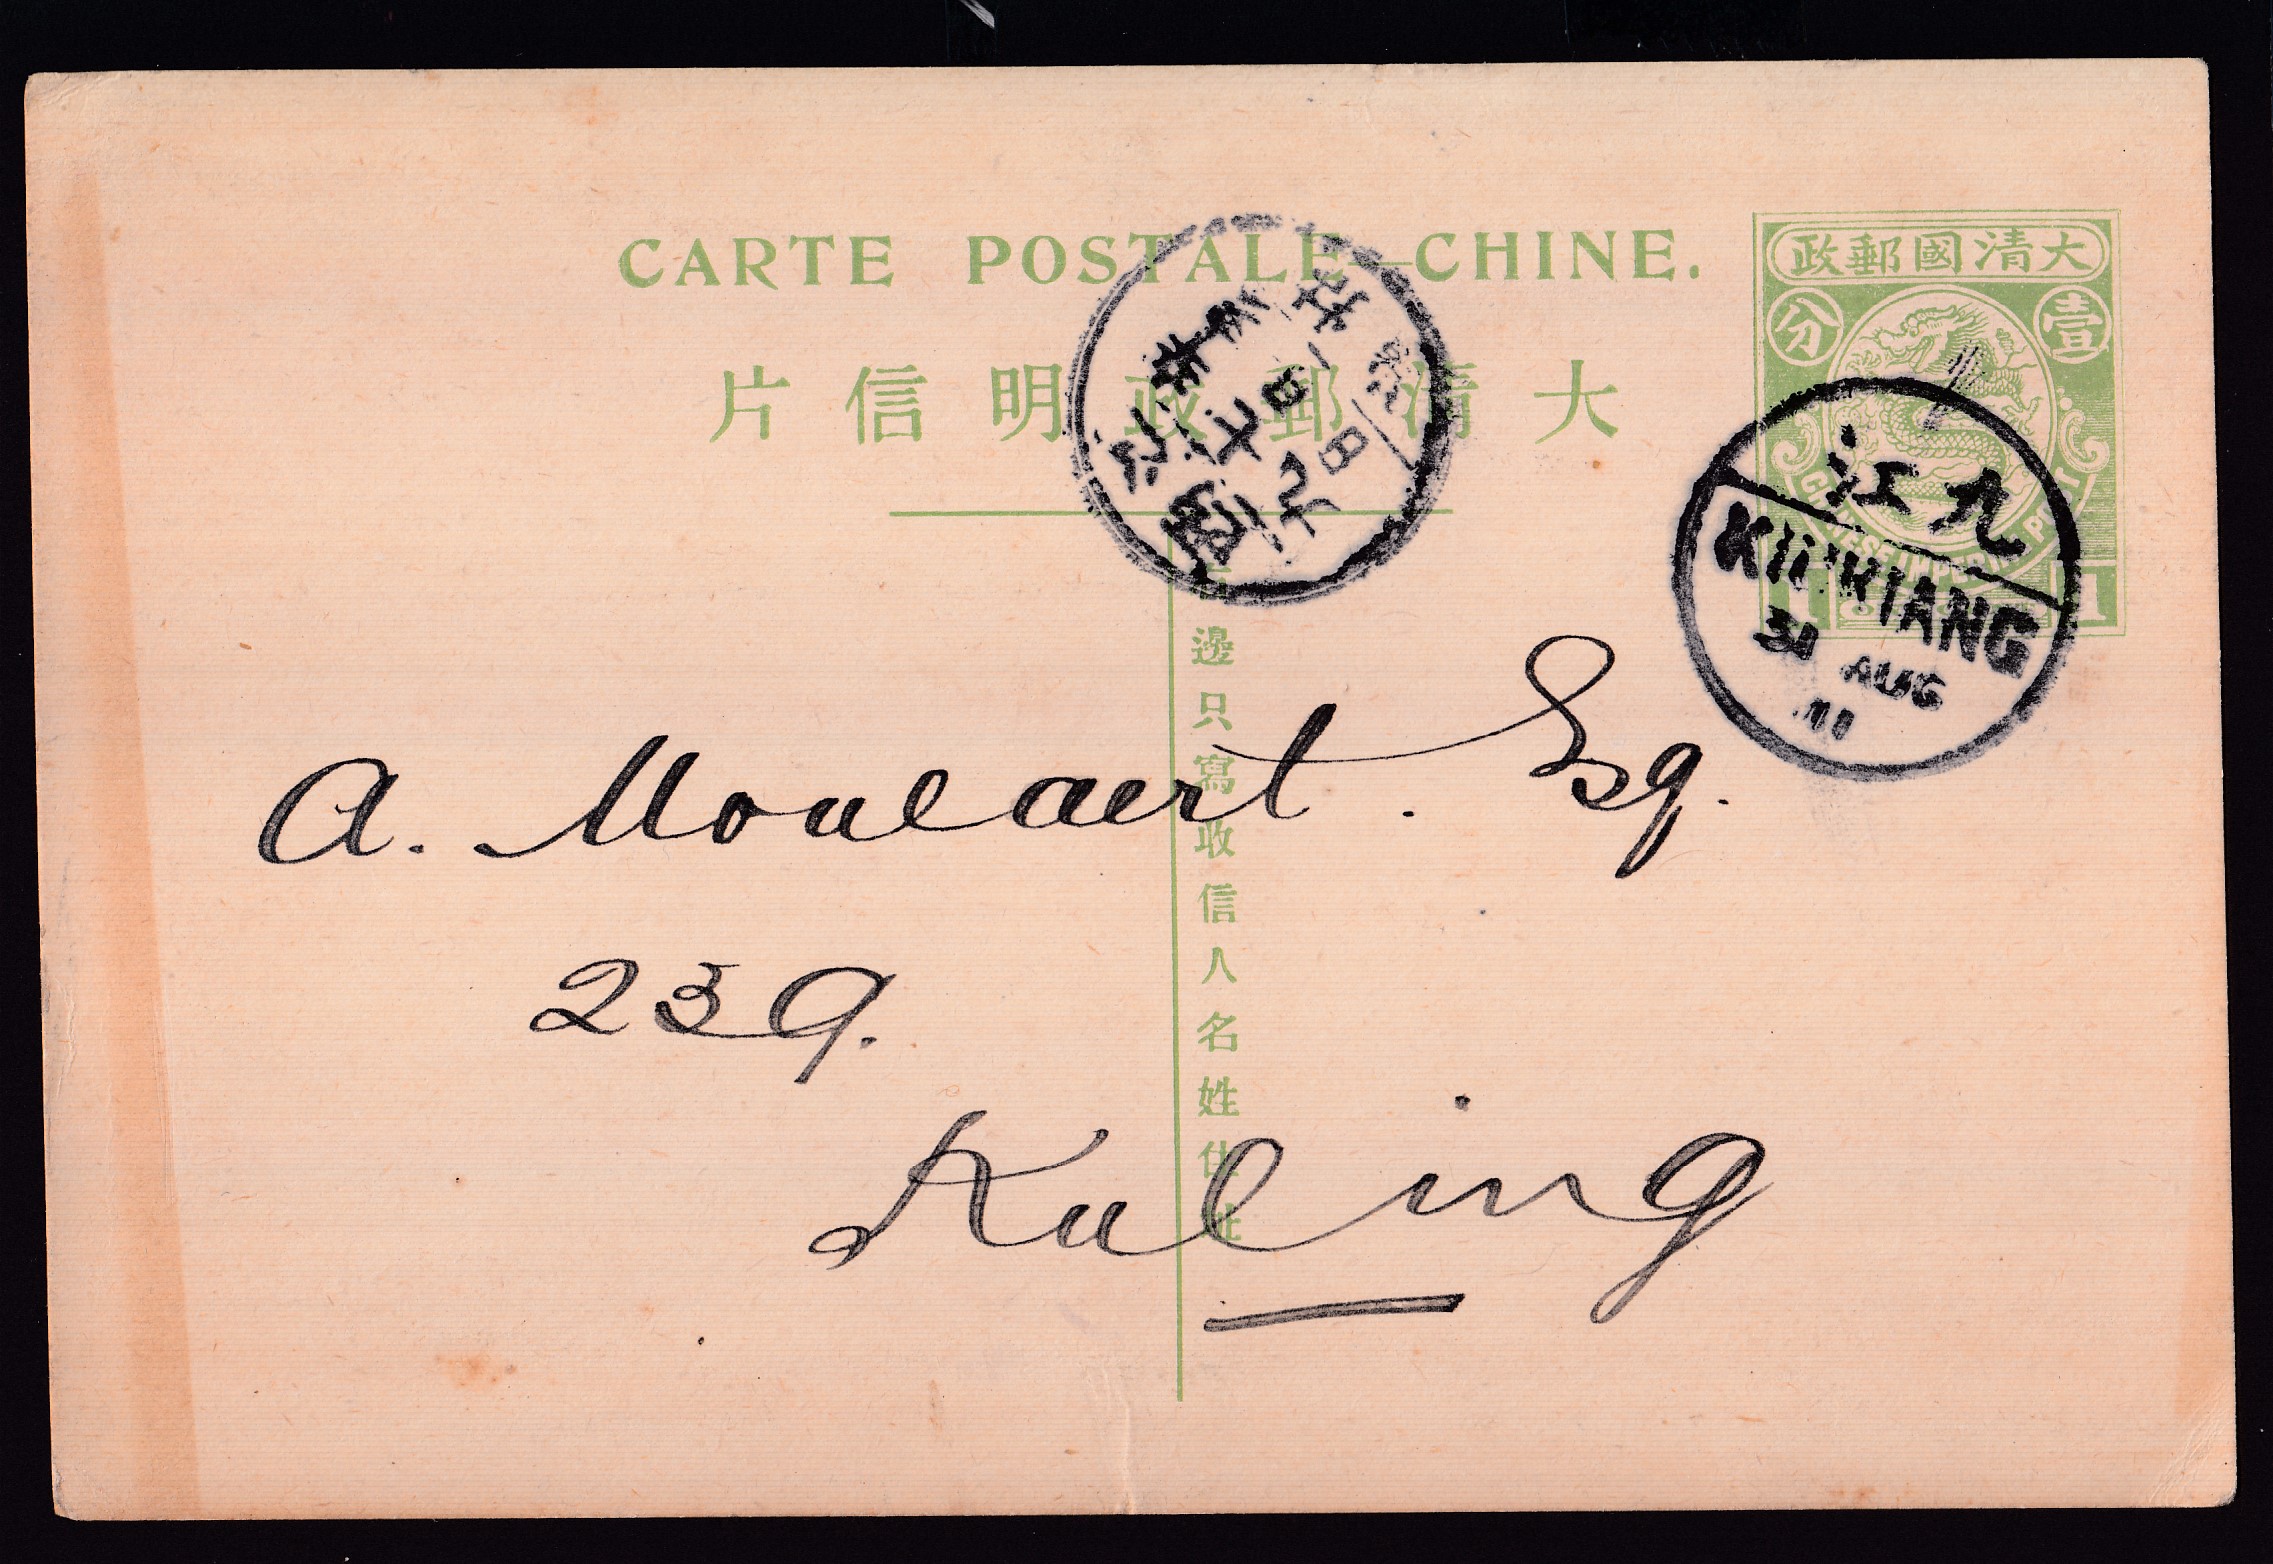 CARTE POSTALE—CHINE.
政郵國清大
分 壹
片信明政郵清大
江九
KIUKIANG
31 AUG
11
CHINESE IMPERIAL POST
1 1
邊只寫收信人名姓住址
A. Moulaert. Esq.
239.
Kuling